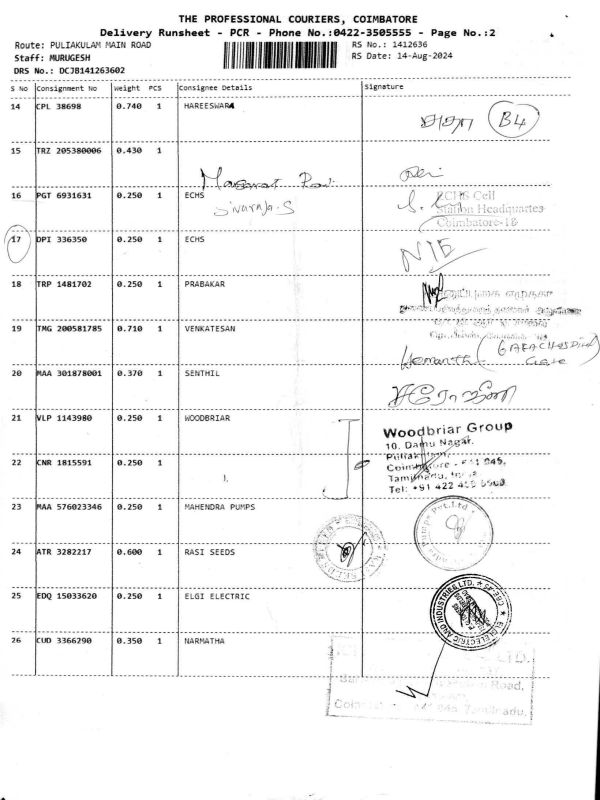 THE PROFESSIONAL COURIERS, COIMBATORE
Delivery Runsheet - PCR - Phone No.:0422-3505555 - Page No.:2
Route: PULIAKULAM MAIN ROAD RS No.: 1412636
Staff: MURUGESH RS Date: 14-Aug-2024
DRS No.: DCJB141263602
S No Consignment No Weight PCS Consignee Details Signature
14 CPL 38698 0.740 1 HAREESWARA
B4
15 TRZ 205380006 0.430 1
16 PGT 6931631 0.250 1 ECHS ECHS Cell
Sivaraja.S Station Headquartes
Coimbatore-18
17 DPI 336350 0.250 1 ECHS
18 TRP 1481702 0.250 1 PRABAKAR
19 TMG 200581785 0.710 1 VENKATESAN
Hemanth
20 MAA 301878001 0.370 1 SENTHIL
சரோஜினி
21 VLP 1143980 0.250 1 WOODBRIAR Woodbriar Group
10, Damu Nagar,
22 CNR 1815591 0.250 1
Tel: +91 422
23 MAA 576023346 0.250 1 MAHENDRA PUMPS
24 ATR 3282217 0.600 1 RASI SEEDS
25 EDQ 15033620 0.250 1 ELGI ELECTRIC ELGI ELECTRIC AND INDUSTRIES LTD.
26 CUD 3366290 0.350 1 NARMATHA